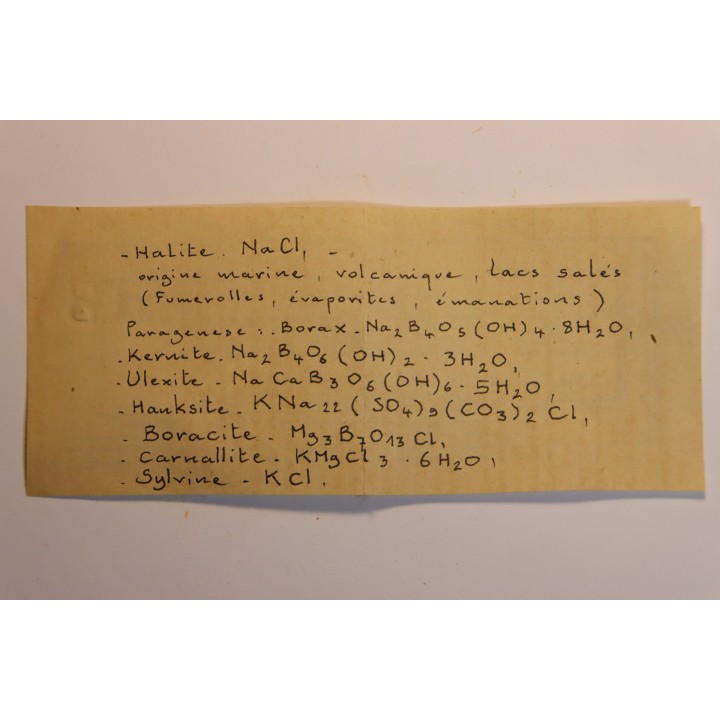 - Halite. NaCl, -
origine marine, volcanique, lacs salés
(Fumerolles, évaporites, émanations)
Paragenese:. Borax - Na2B4O5(OH)4 · 8H2O,
- Kernite. Na2B4O6(OH)2 · 3H2O,
- Ulexite - NaCaB3O6(OH)6 · 5H2O,
- Hanksite - KNa22(SO4)9(CO3)2Cl,
- Boracite - Mg3B7O13Cl,
- Carnallite - KMgCl3 · 6H2O,
- Sylvine - KCl.